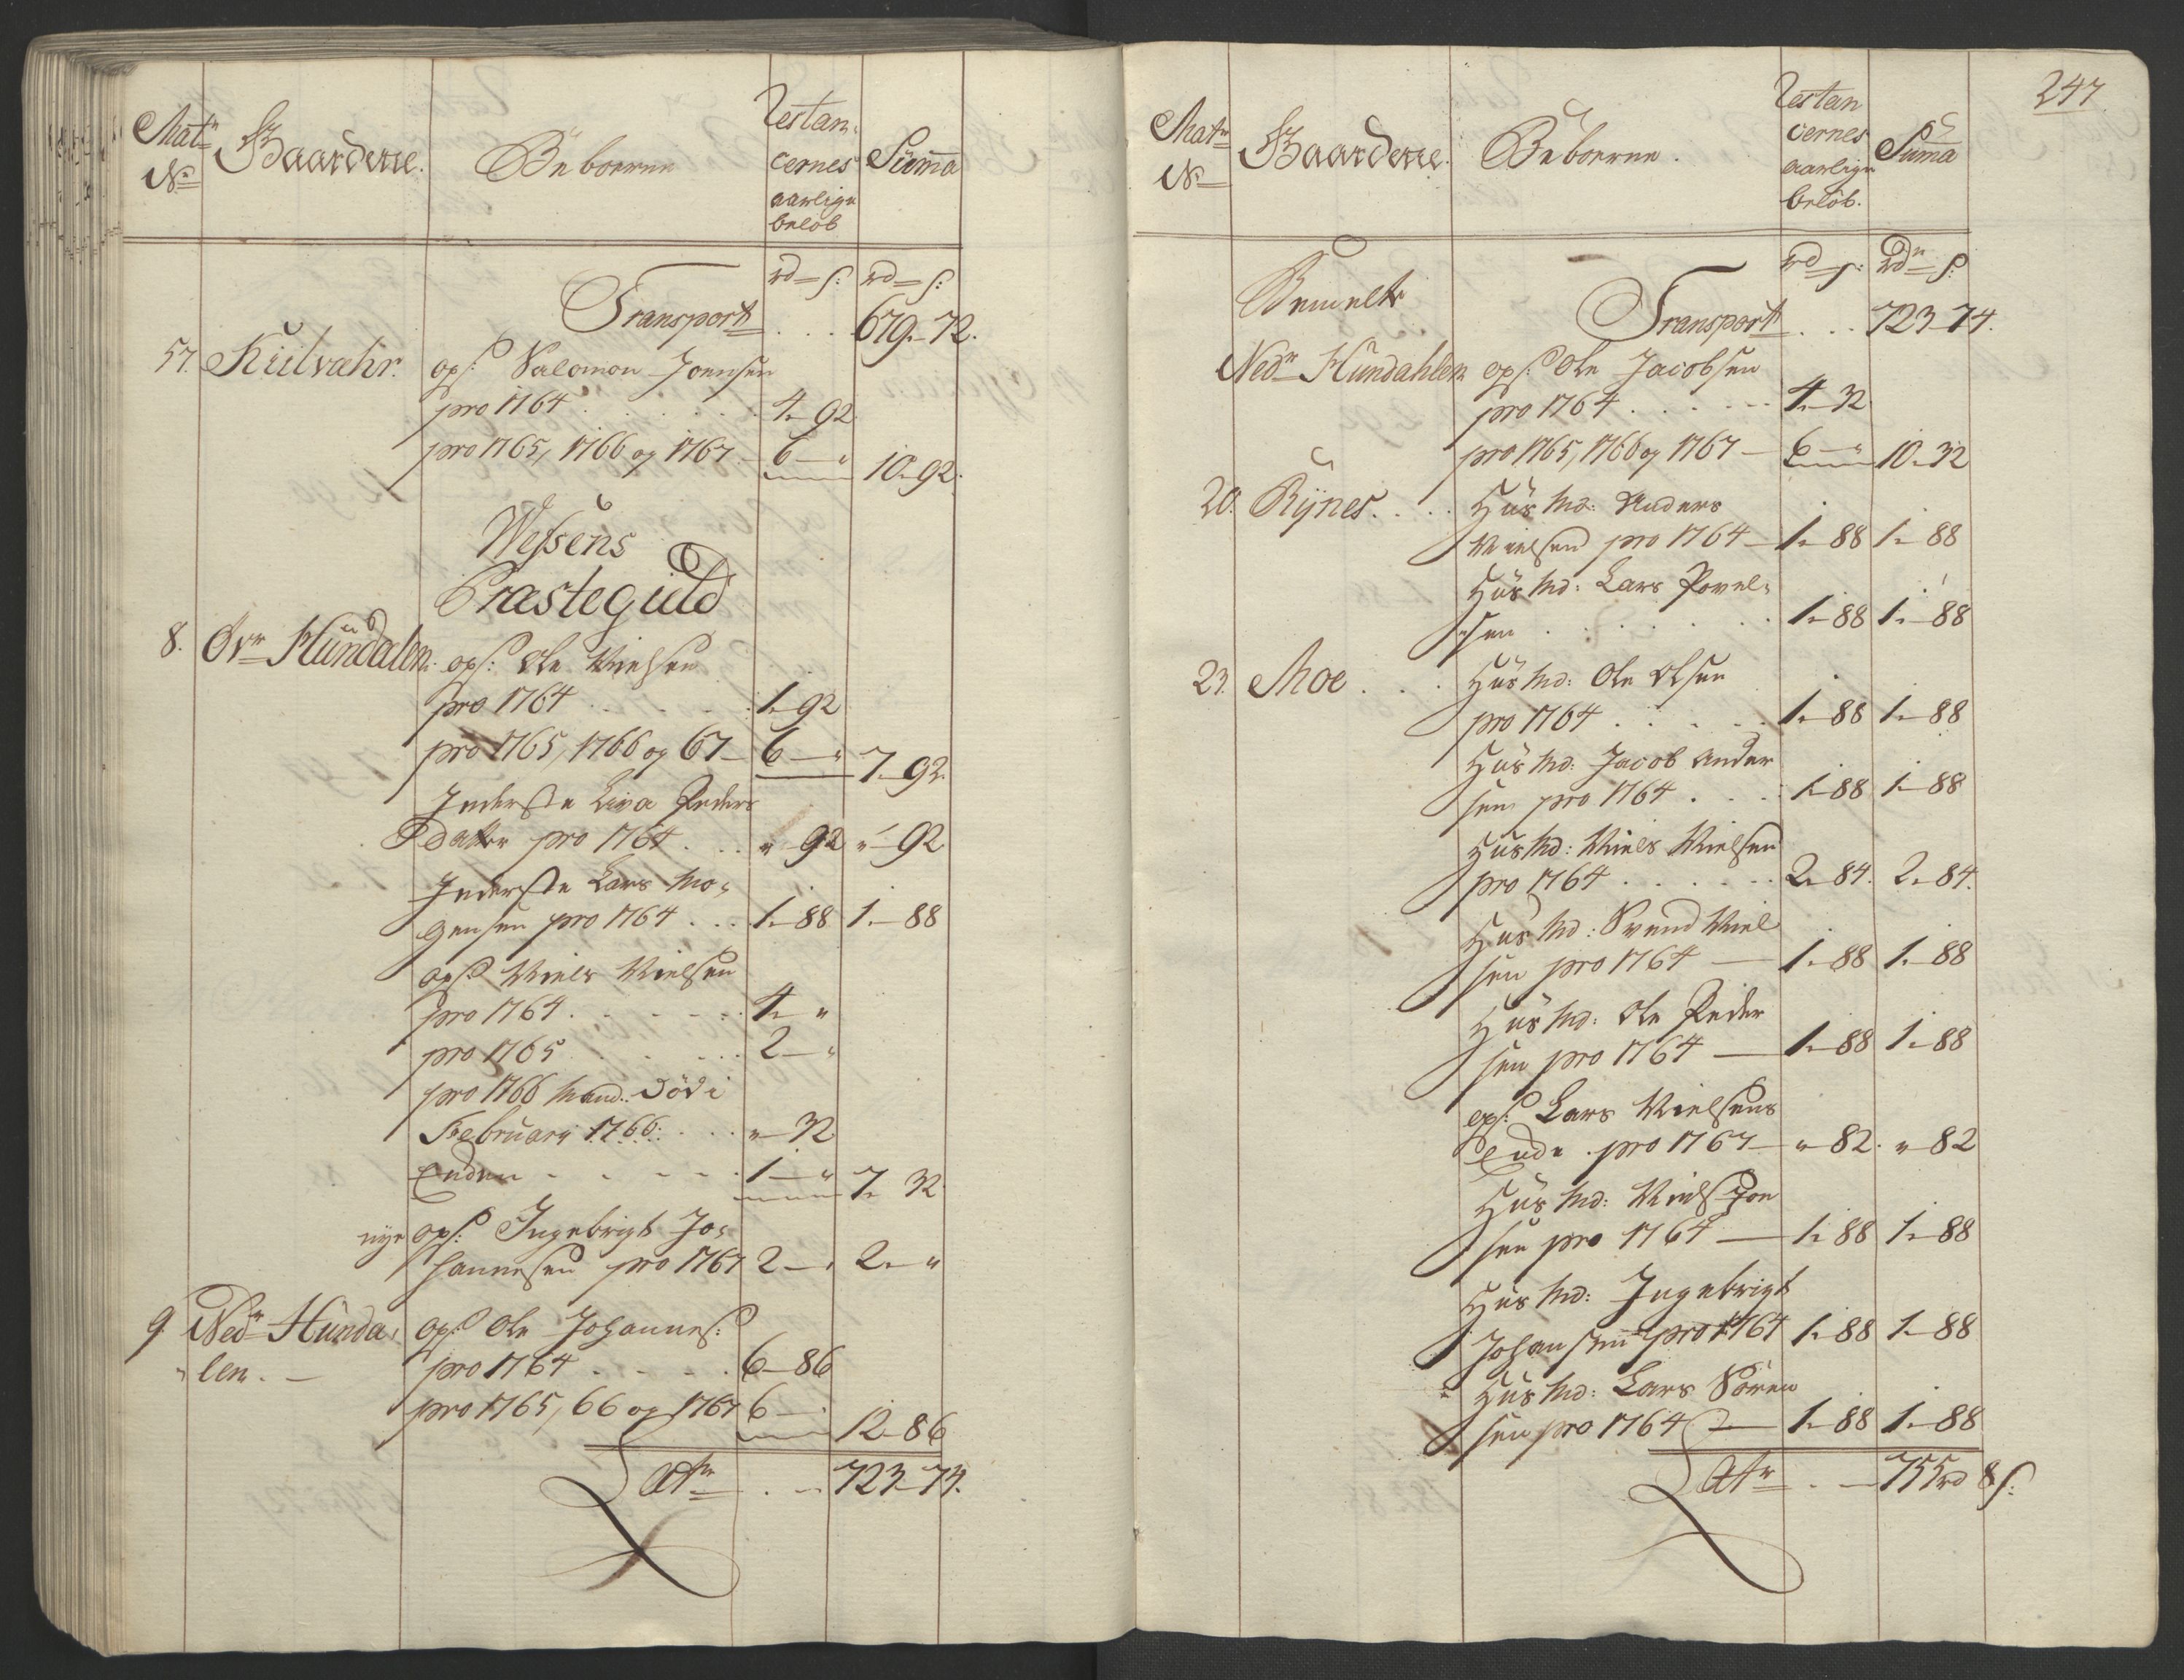 Matr
No
Gaardene.
Beboerne
Restan-
cernes
aarlige
beløb
Summa
rd - s: rd - s:
Transport . . . 679 - 72.
57. Kulvahr. ops: Salomon Joensen
pro 1764 . . . . . 4 - 92
pro 1765, 1766 og 1767 - 6 - " 10 - 92.
Wefsens
Præstegield
8. Øvr Hundalen. ops: Ole Nielsen
pro 1764 . . . . . 1 - 92
pro 1765, 1766 og 67 - 6 - " 7 - 92.
Inderste Liva Peders
datter pro 1764 . . . " 92 " - 92
Inderste Lars Mo-
gensen pro 1764 . . . 1 - 88 1 - 88
ops: Niels Nielsen
pro 1764 . . . . . 4 - "
pro 1765 . . . . . 2 - "
pro 1766 Mand: død i
February 1766: . . . " - 32
Enken . . . . . 1 - " 7 - 32
nye ops: Ingebrigt Jo-
hannesen pro 1767 2 - " 2 - "
9. Nedr Hunda- ops: Ole Johannes:
len. - pro 1764 . . . . . 6 - 86
pro 1765, 66 og 1767 6 - " 12 - 86
Latr . . . 723 - 74.
247.
Matr
No
Gaardene.
Beboerne.
Restan
cernes
aarlige
beløb.
Summa
rd - s: rdr - s:
Bemelte
Transport . . . 723 - 74.
Nedr Hundahlen ops: Ole Jacobsen
pro 1764 . . . . . 4 - 32
pro 1765, 1766 og 1767 - 6 - " 10 - 32
20. Rÿnes. . . . Huusmd: Anders
Nielsen pro 1764 - 1 - 88 1 - 88
Huusmd: Lars Povel-
sen . . . . . . . 1 - 88 1 - 88
23. Moe . . . Huusmd: Ole Olsen
pro 1764 . . . . . 1 - 88 1 - 88
Huusmd: Jacob Ander
sen pro 1764 . . . 1 - 88 1 - 88
Huusmd: Niels Nielsen
pro 1764 . . . . . . 2 - 84. 2 - 84.
Huusmd: Svend Niel
sen pro 1764 - 1 - 88 1 - 88
Huusmd: Ole Peder
sen pro 1764 - 1 - 88 1 - 88
ops: Lars Nielsens
Enke . pro 1767 - " 82. " 82
Huusmd: Niels Jon
sen pro 1764 - 1 - 88 1 - 88
Huusmd: Ingebrigt
Johansen pro 1764 1 - 88 1 - 88
Huusmd: Lars Sören
sen pro 1764 - 1 - 88 1 - 88
Latr . . - 755 rd 8 s: